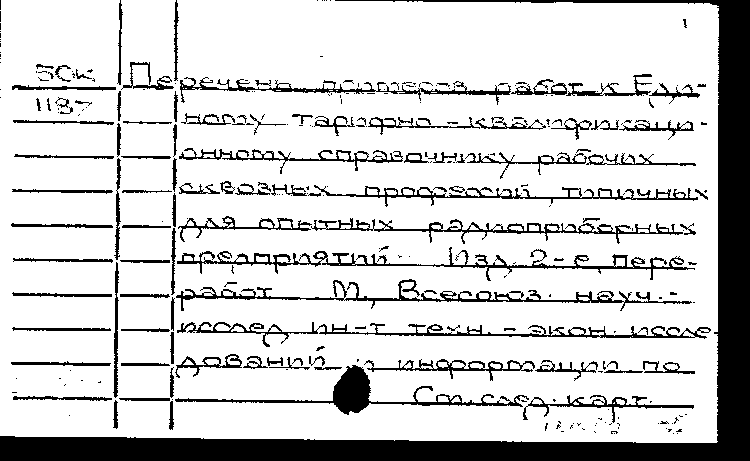 1
50к Перечень примеров работ к Еди-
1187 ному тарифно-квалификаци-
онному справочнику рабочих
сквозных профессий, типичных
для опытных радиоприборных
предприятий. Изд. 2-е, пере-
работ. М., Всесоюз. науч.-
исслед. ин-т техн.-экон. иссле-
дований и информации по
См. след. карт.